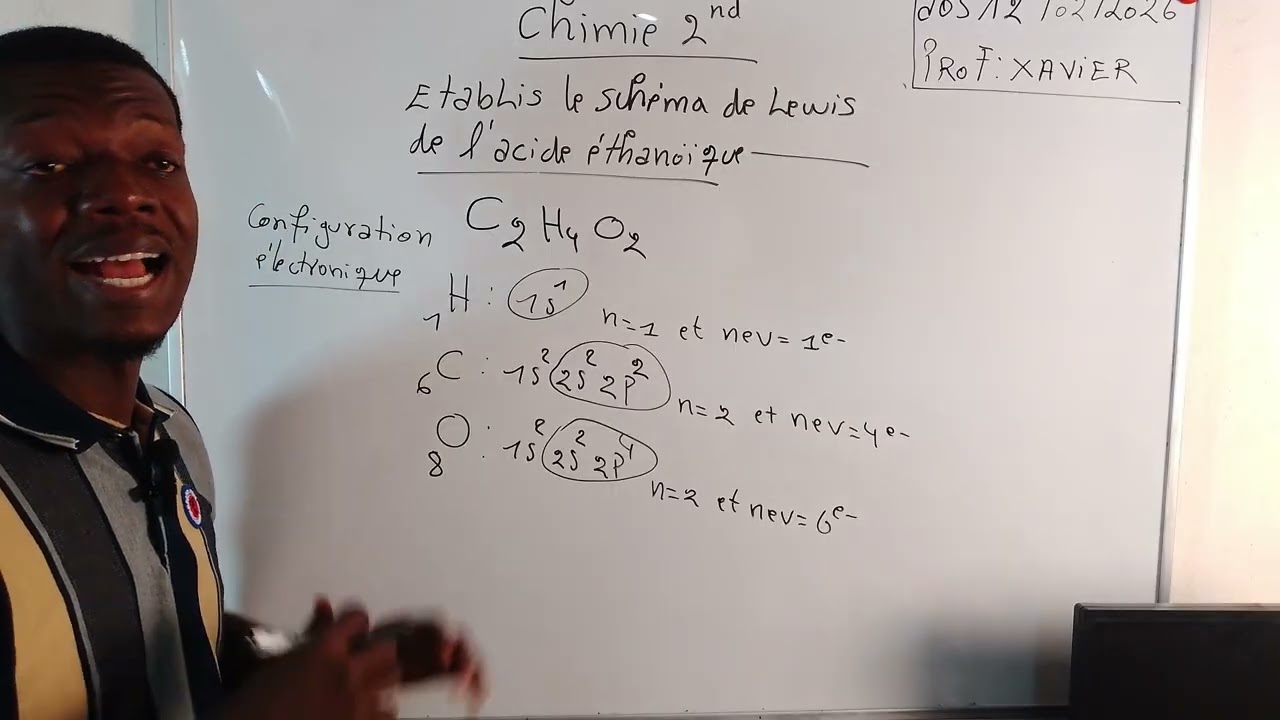 Chimie 2nd
dos 12/02/2026
Prof: XAVIER
Etablis le schéma de Lewis
de l'acide éthanoïque
Configuration
électronique
C2H4O2
1H : 1s1
n=1 et nev=1e-
6C : 1s2 2s2 2p2
n=2 et nev=4e-
8O : 1s2 2s2 2p4
n=2 et nev=6e-